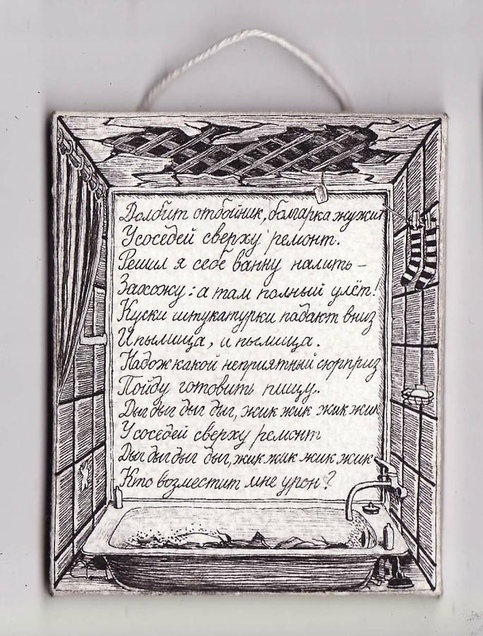 Долбит отбойник, болгарка жужжит
У соседей сверху ремонт.
Решил я себе ванну налить –
Захожу: а там полный улёт!
Куски штукатурки падают вниз
И пылища, и пылища.
Надож какой неприятный сюрприз
Пойду готовить пищу.
Дыг дыг дыг дыг, жик жик жик жик
У соседей сверху ремонт
Дыг дыг дыг дыг, жик жик жик жик
Кто возместит мне урон?